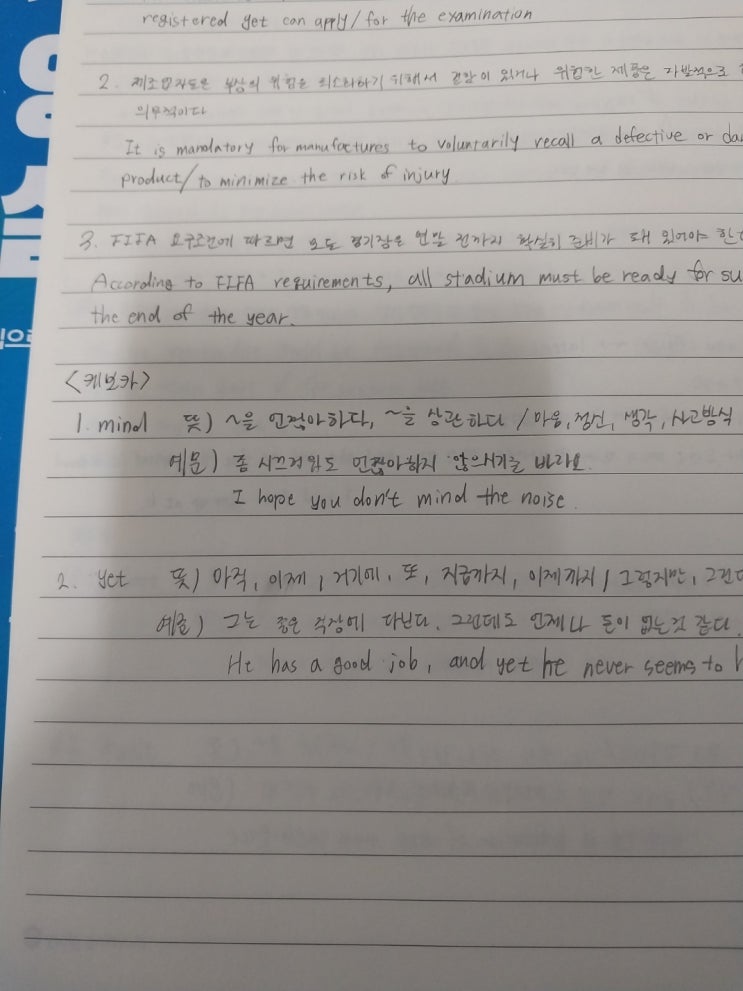 registered yet can apply/ for the examination
2. 제조업자들은 부상의 위험을 최소화하기 위해서 결함이 있거나 위험한 제품은 자발적으로
의무적이다
It is mandatory for manufactures to voluntarily recall a defective or
product/ to minimize the risk of injury
3. FIFA 요구조건에 따르면 모든 경기장은 연말 전까지 확실히 준비가 돼 있어야
According to FIFA requirements, all stadium must be ready for
the end of the year.
<케보카>
1. mind 뜻) ~을 언짢아하다, ~을 상관하다 / 마음, 정신, 생각, 사고방식
예문) 좀 시끄러워도 언짢아하지 않으시기를 바라요.
I hope you don't mind the noise.
2. yet 뜻) 아직, 이제, 거기에, 또, 지금까지, 이제까지 / 그렇지만,
예문) 그는 좋은 직장에 다닌다. 그런데도 언제나 돈이 없는것 같다.
He has a good job, and yet he never seems to